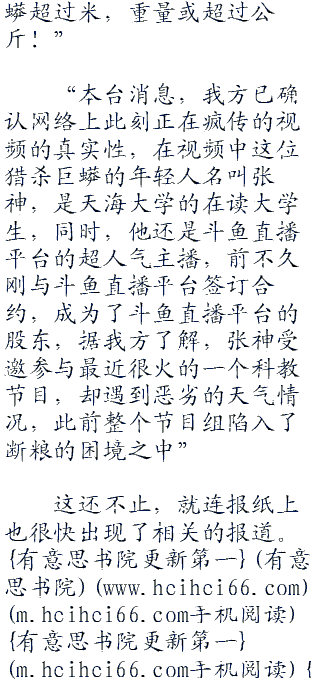 蟒超过米，重量或超过公
斤！”
“本台消息，我方已确
认网络上此刻正在疯传的视
频的真实性，在视频中这位
猎杀巨蟒的年轻人名叫张
神，是天海大学的在读大学
生，同时，他还是斗鱼直播
平台的超人气主播，前不久
刚与斗鱼直播平台签订合
约，成为了斗鱼直播平台的
股东，据我方了解，张神受
邀参与最近很火的一个科教
节目，却遇到恶劣的天气情
况，此前整个节目组陷入了
断粮的困境之中”
这还不止，就连报纸上
也很快出现了相关的报道。
{有意思书院更新第一}(有意
思书院)(www.hcihci66.com)
(m.hcihci66.com手机阅读)
{有意思书院更新第一}
(m.hcihci66.com手机阅读){